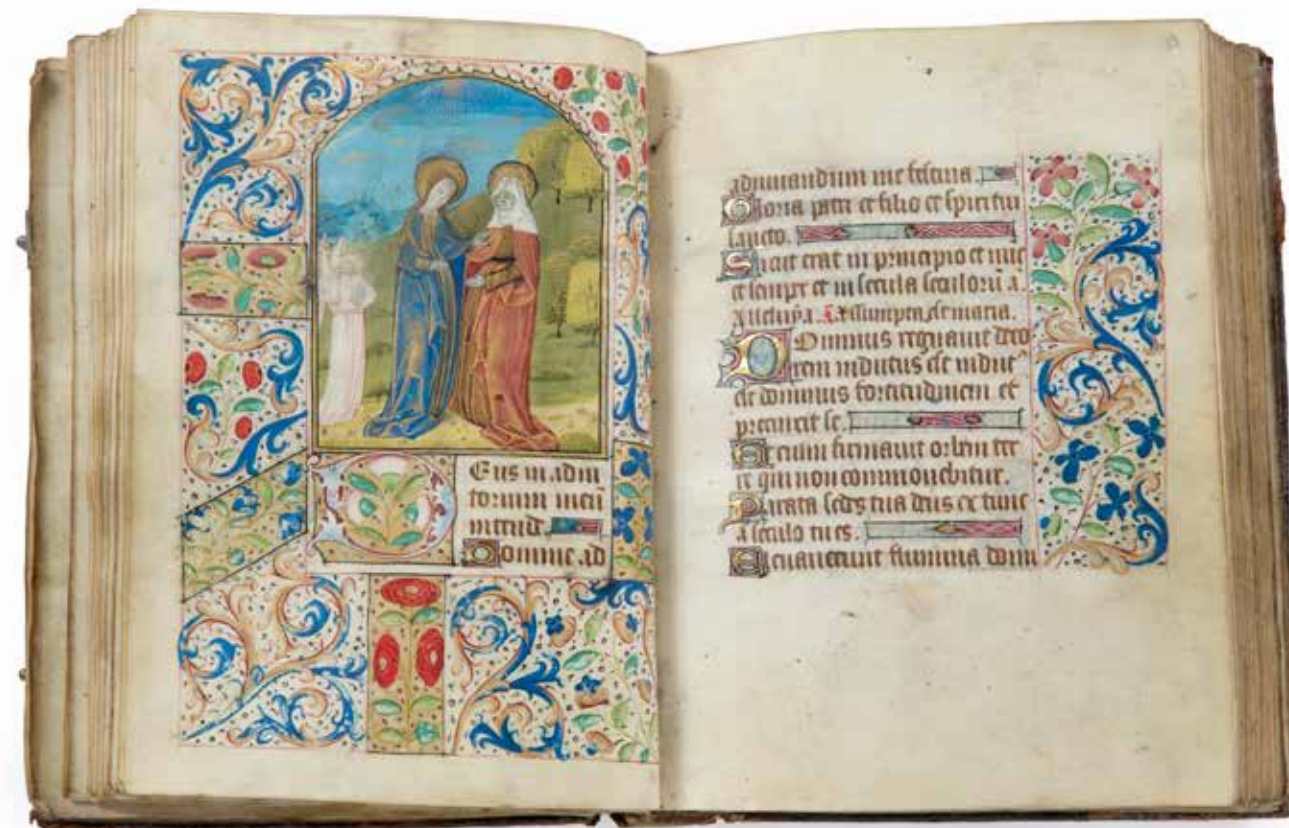 Deus in adiu
torium meū
intende.
Domine ad
adiuuandum me festina
Gloria patri et filio et spiritui
sancto.
Sicut erat in principio et nūc
et semp̄ et in secula seculorū a.
Alleluya. ā. Assumpta est maria.
Dominus regnauit deco
rem indutus est indut᾿
est dominus fortitudinem et
precinxit se.
Etenim firmauit orbem ter
re qui non commouebitur.
Parata sedes tua deus ex tunc
a seculo tu es.
Eleuauerunt flumina domi